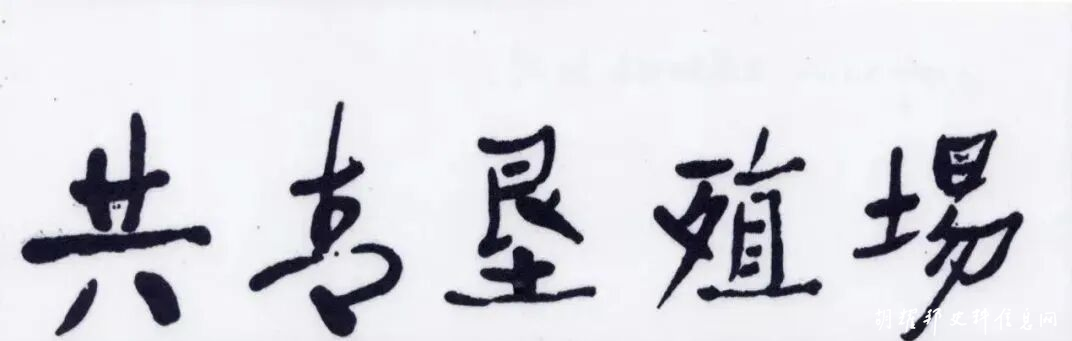 共青垦殖場
胡耀邦史料信息网